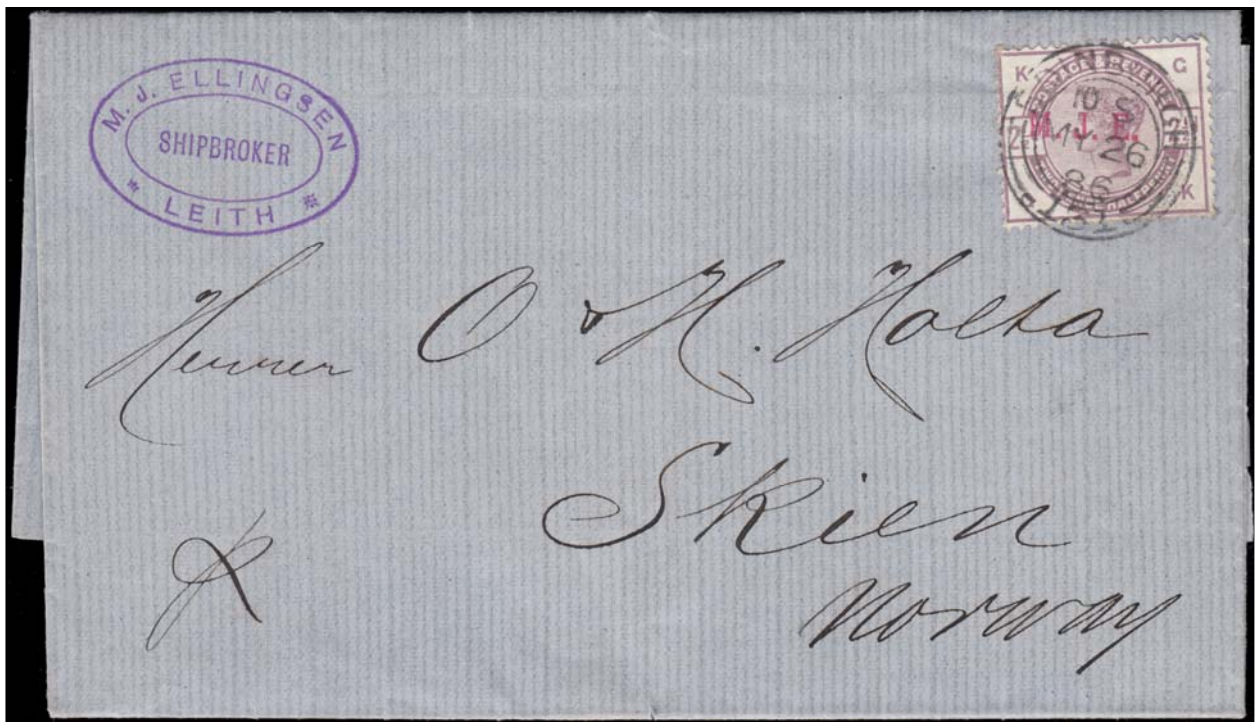 M. J. ELLINGSEN
SHIPBROKER
LEITH
K G
POSTAGE & REVENUE
M. J. E.
K
10 S
MY 26
86
131
Herrer O & H. Holta
Skien
Norway